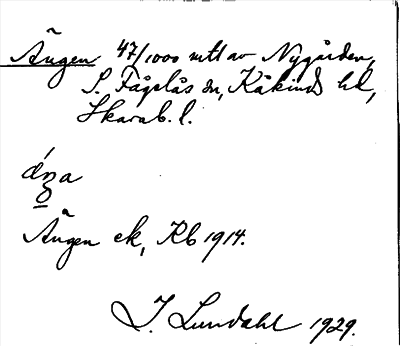 Ängen 47/1000 mtl av Nygården,
S. Fågelås sn, Kåkinds hd,
Skarab. l.
Ängen ek, Kb 1914.
I. Lundahl 1929.